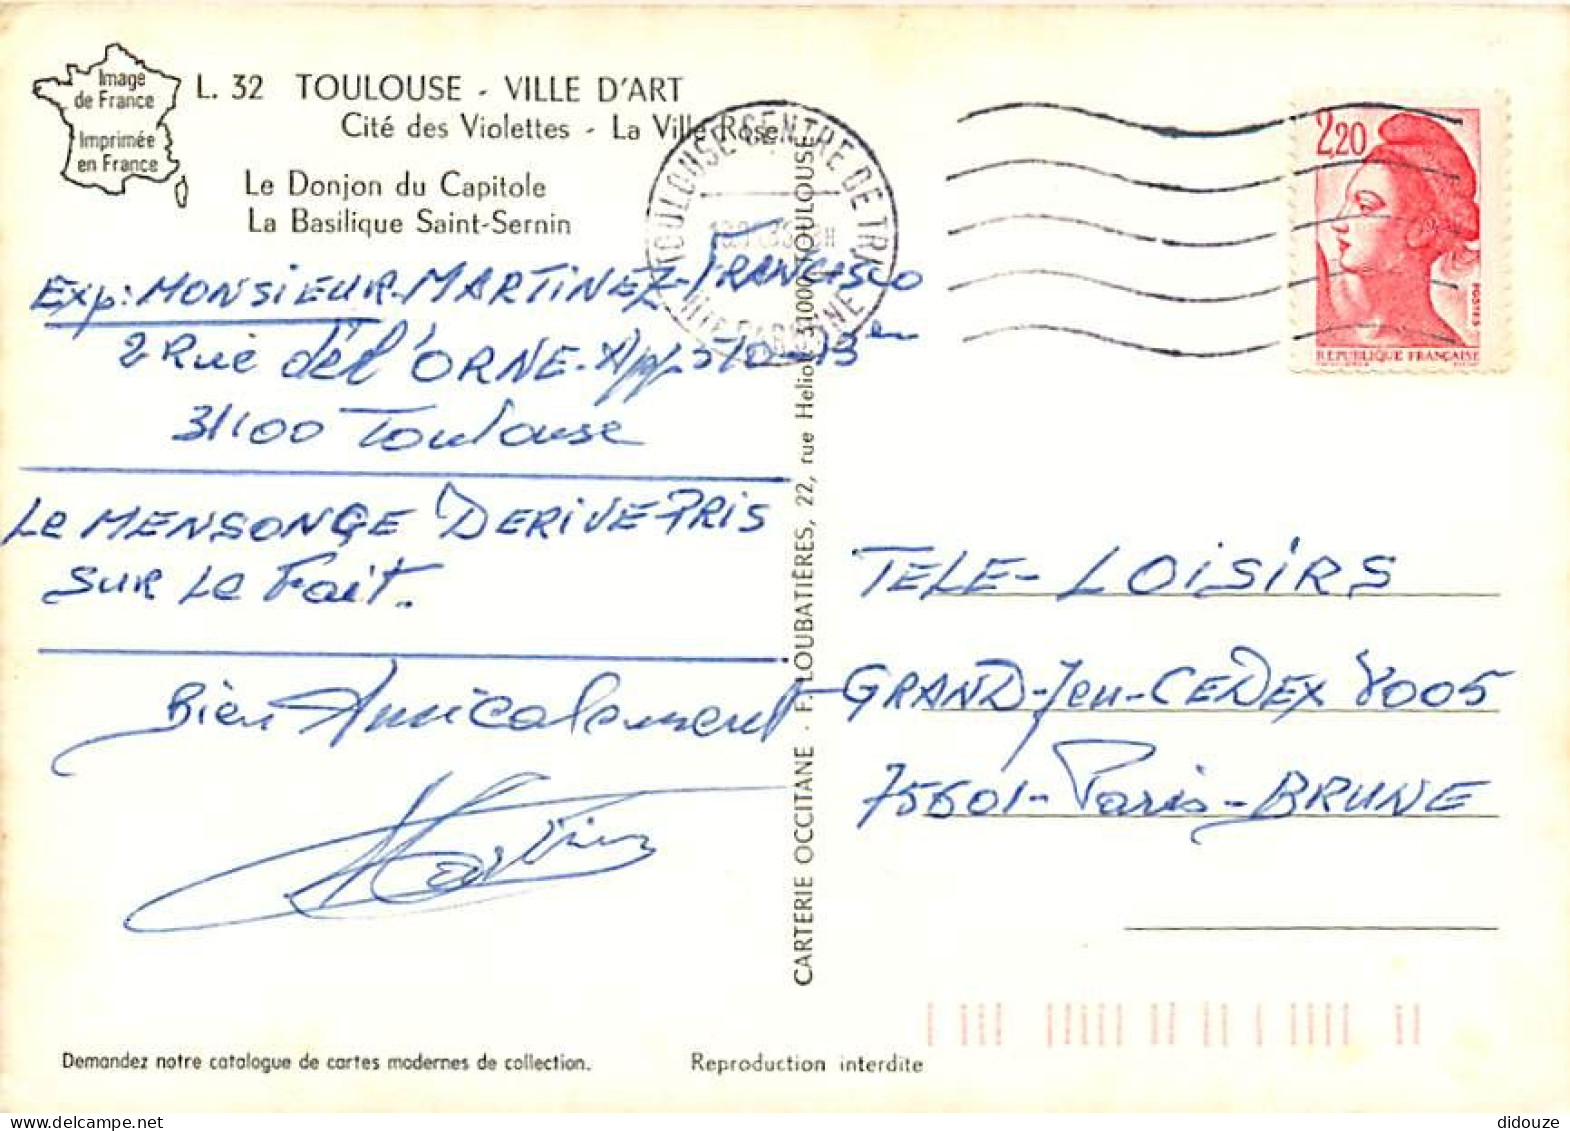 Image
de France
Imprimée
en France
L. 32 TOULOUSE - VILLE D'ART
Cité des Violettes - La Ville Rose
Le Donjon du Capitole
La Basilique Saint-Sernin
TOULOUSE CENTRE DE TRI
HTE GARONNE
2,20
POSTES
REPUBLIQUE FRANÇAISE
Exp: MONSIEUR-MARTINEZ-FRANCISCO
2 Rue de l'ORNE-App
31100 Toulouse
Le MENSONGE DERIVE-PRIS
SUR Le Fait.
Bien Amicalement
Martinez
CARTERIE OCCITANE - F. LOUBATIÈRES, 22, rue Heliot 31000 TOULOUSE
TELE-LOISIRS
GRAND-Jeu-CEDEX 8005
75601-Paris-BRUNE
Demandez notre catalogue de cartes modernes de collection.
Reproduction interdite
didouze